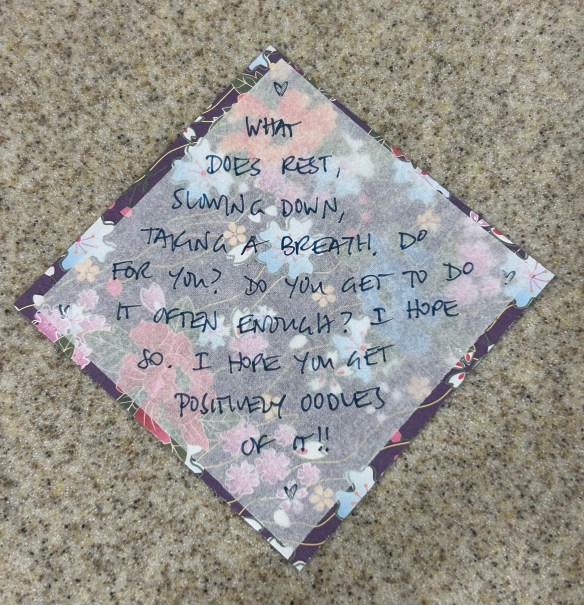 WHAT
DOES REST,
SLOWING DOWN,
TAKING A BREATH, DO
FOR YOU? DO YOU GET TO DO
IT OFTEN ENOUGH? I HOPE
SO. I HOPE YOU GET
POSITIVELY OODLES
OF IT!!